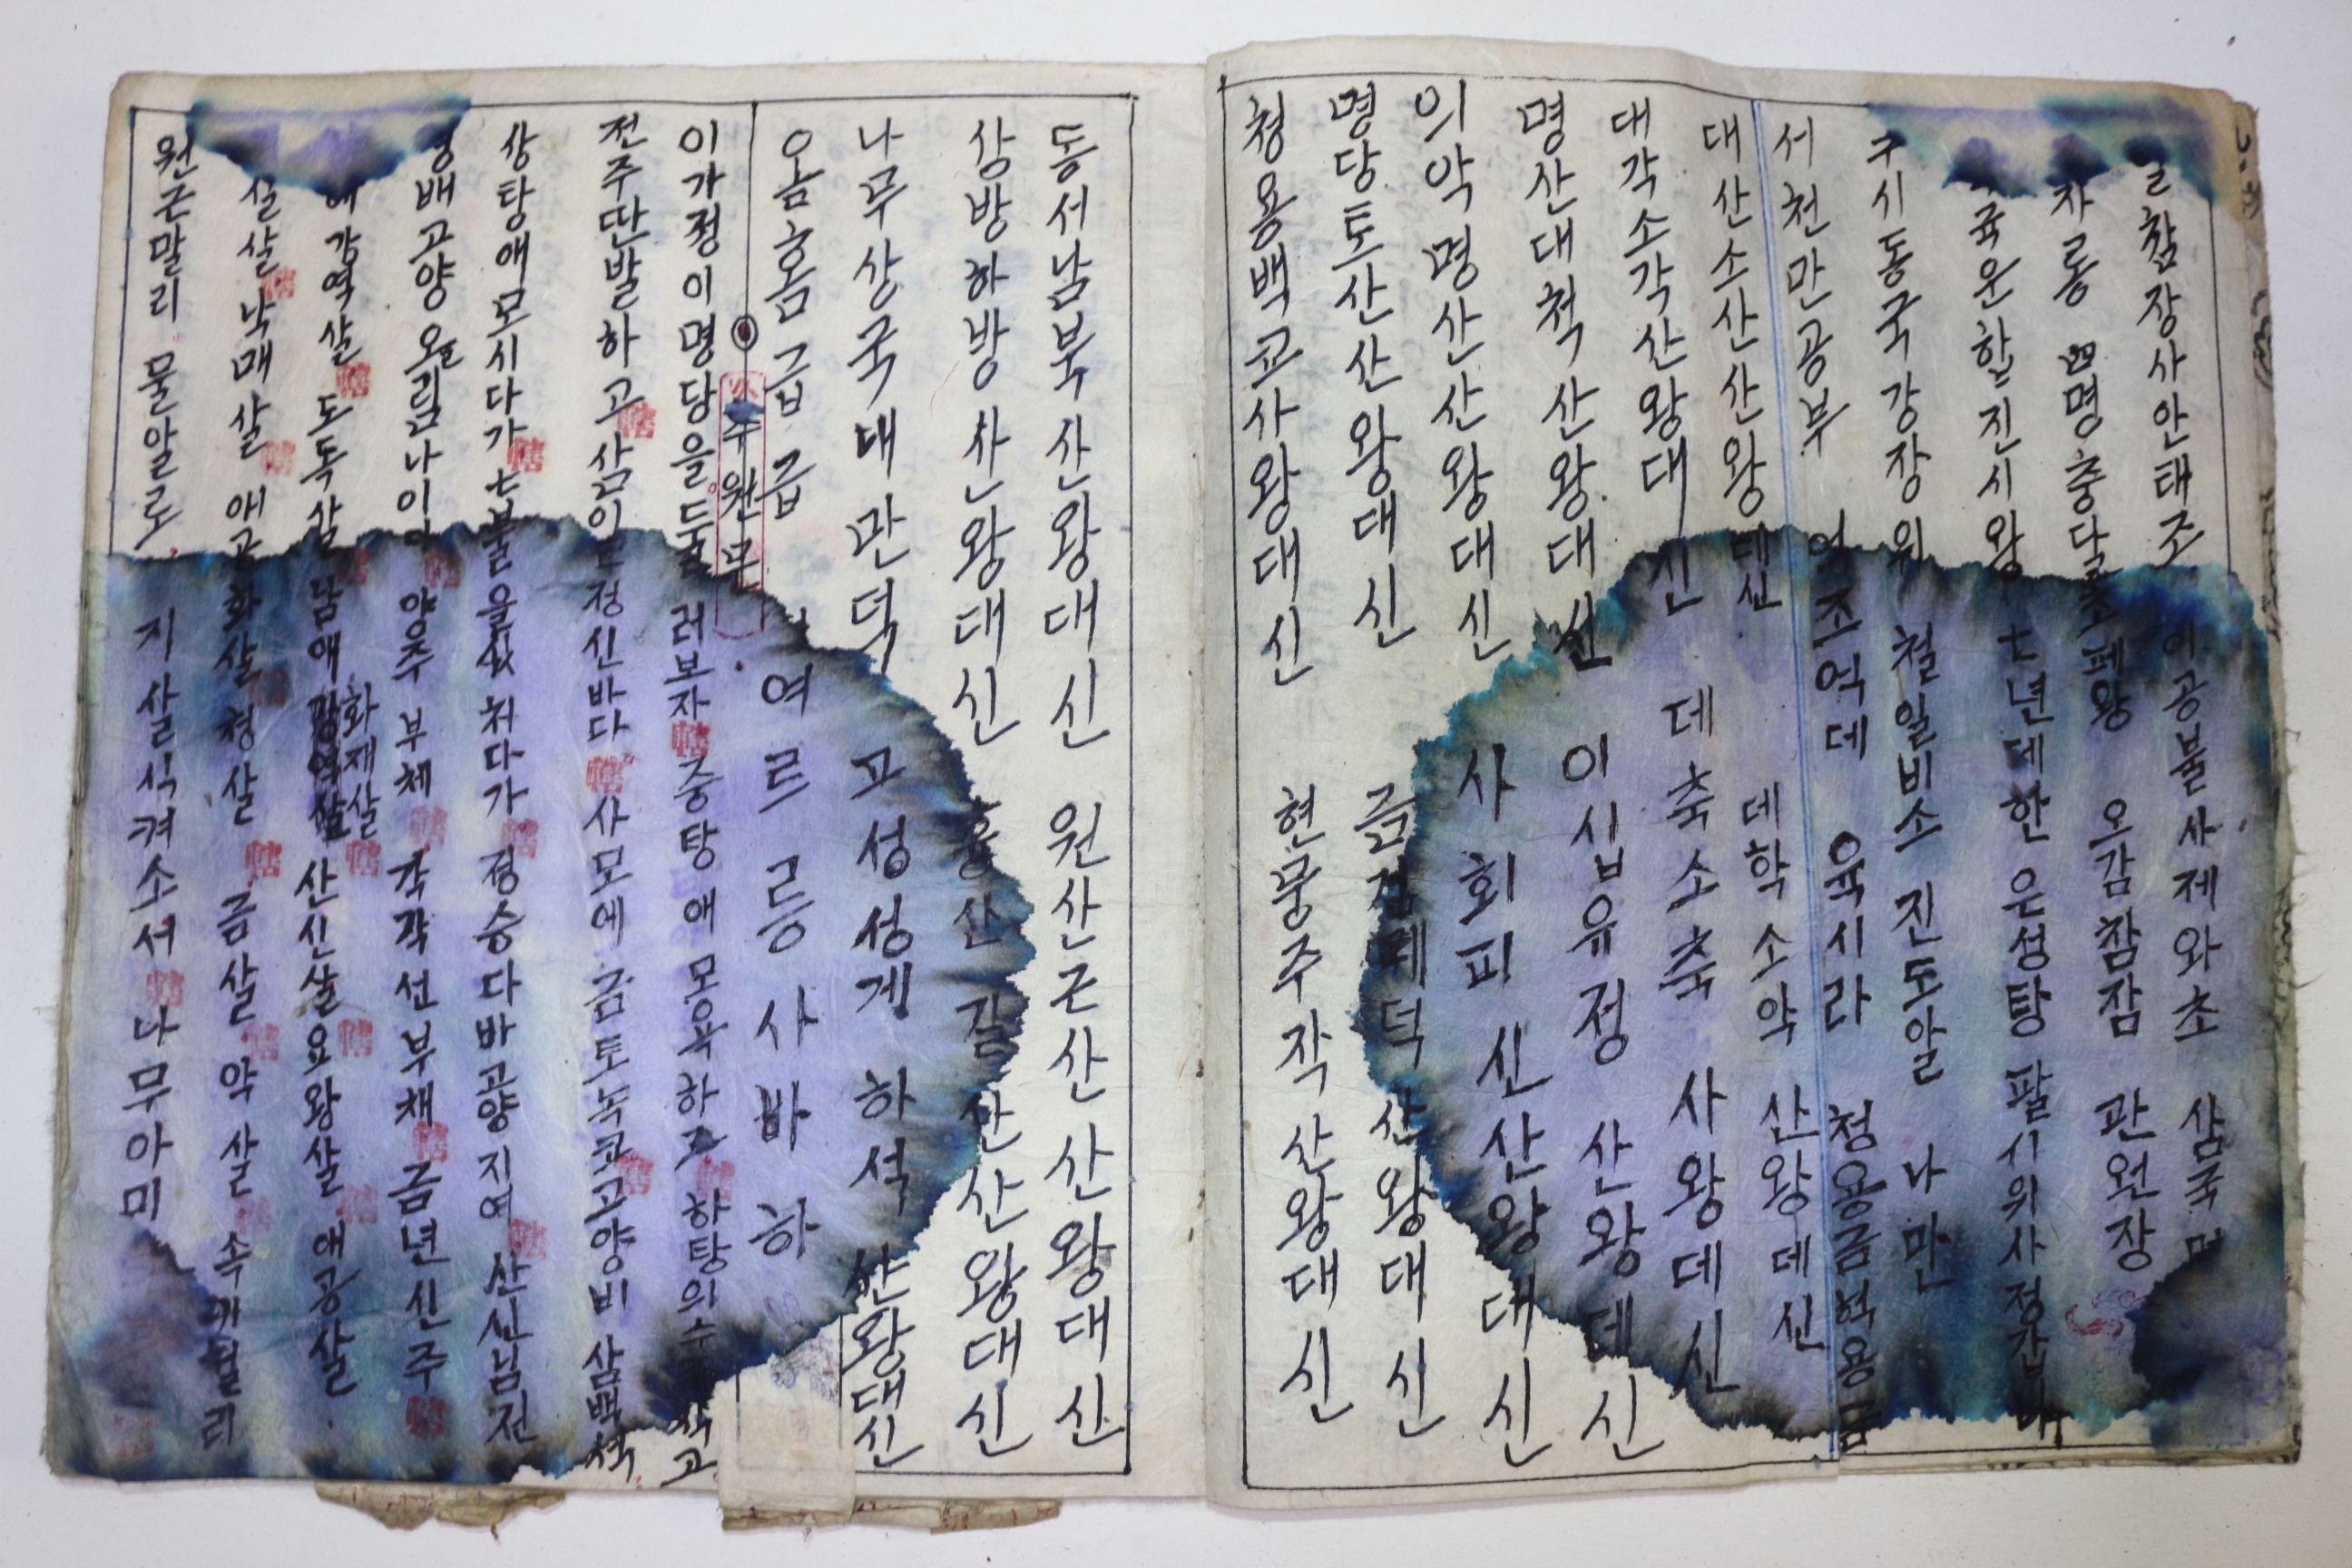 살참장사안태조 공불사제와초 삼국
자룡 四명중다 왕 오감참잠 관원장
육운한진시왕 七년데한 은성탕 팔시위사정갑
구시동국강장 철일비소 진도알 나만
서천만공부 억조억데 육시라 청용금
대산소산산왕대신 데학소악 산왕데신
대각소각산왕대신 데축소축 사왕데신
명산대척산왕대신 이십유정 산왕데신
의악명산산왕대신 사회피신산왕대신
명당토산산왕대신 금 데덕 산왕대신
청용백교사왕대신 현뭉주작 산왕대신
동서남북산왕대신 원산근산 산왕대신
상방하방산왕대신 흉산길산 산왕대신
나무상국대만덕 고성성게 하석 산왕대신
옴홈급급 여르릉 사바하
주원문
이가정이명당을둘러보자 중탕애 모욕하고 하탕의수 고
전주딴발하고 삼 정신바다 사모에 금토녹코고양비 삼백석
상탕애모시다가 七불을 처다가 정승다바고양지여 산신님전
배고양 올림나이다 양주부체 각각선부채 금년신주
도독살 남애 화재살 산신살 요왕살 애공살
살살 낙매살 애 화살 청살 금살 약살 속 리
원근말리 물알로 지살식켜소서 나무아미